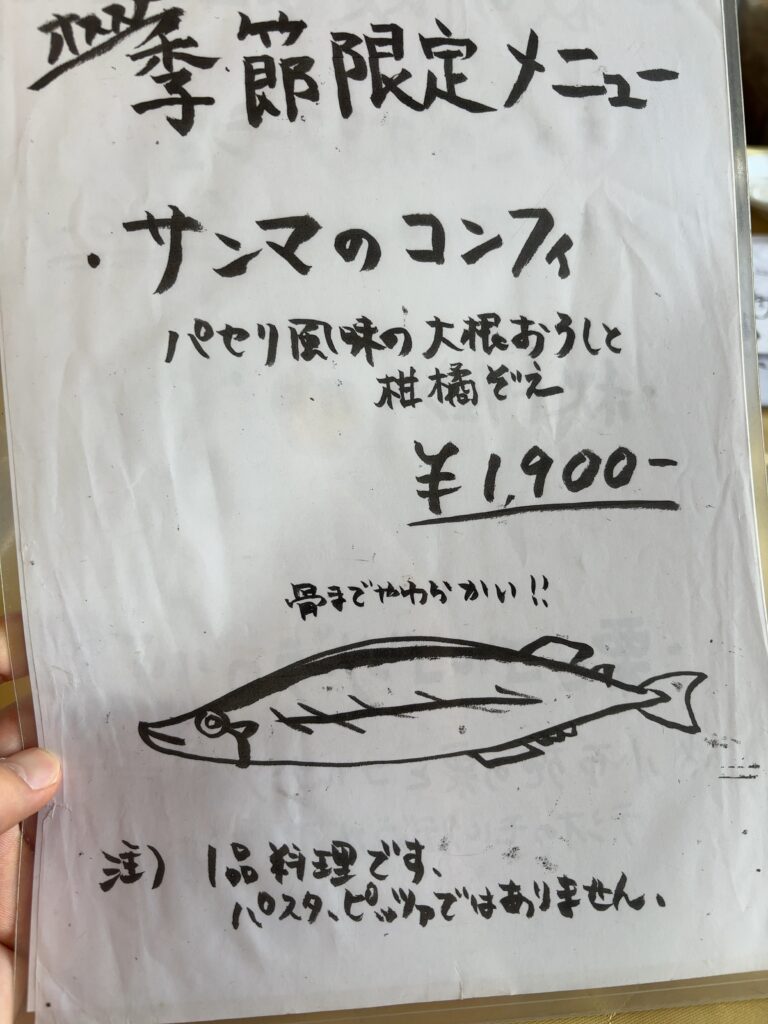 オススメ
季節限定メニュー
・サンマのコンフィ
パセリ風味の大根おろしと
柑橘ぞえ
¥1,900-
骨までやわらかい!!
注) 1品料理です、
パスタ、ピッツァではありません、